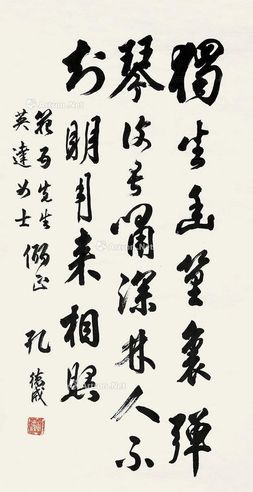 獨坐幽篁裏彈
琴復長嘯深林人不
知明月来相照
先生
英達女士
儷正
孔德成
Artron.Net